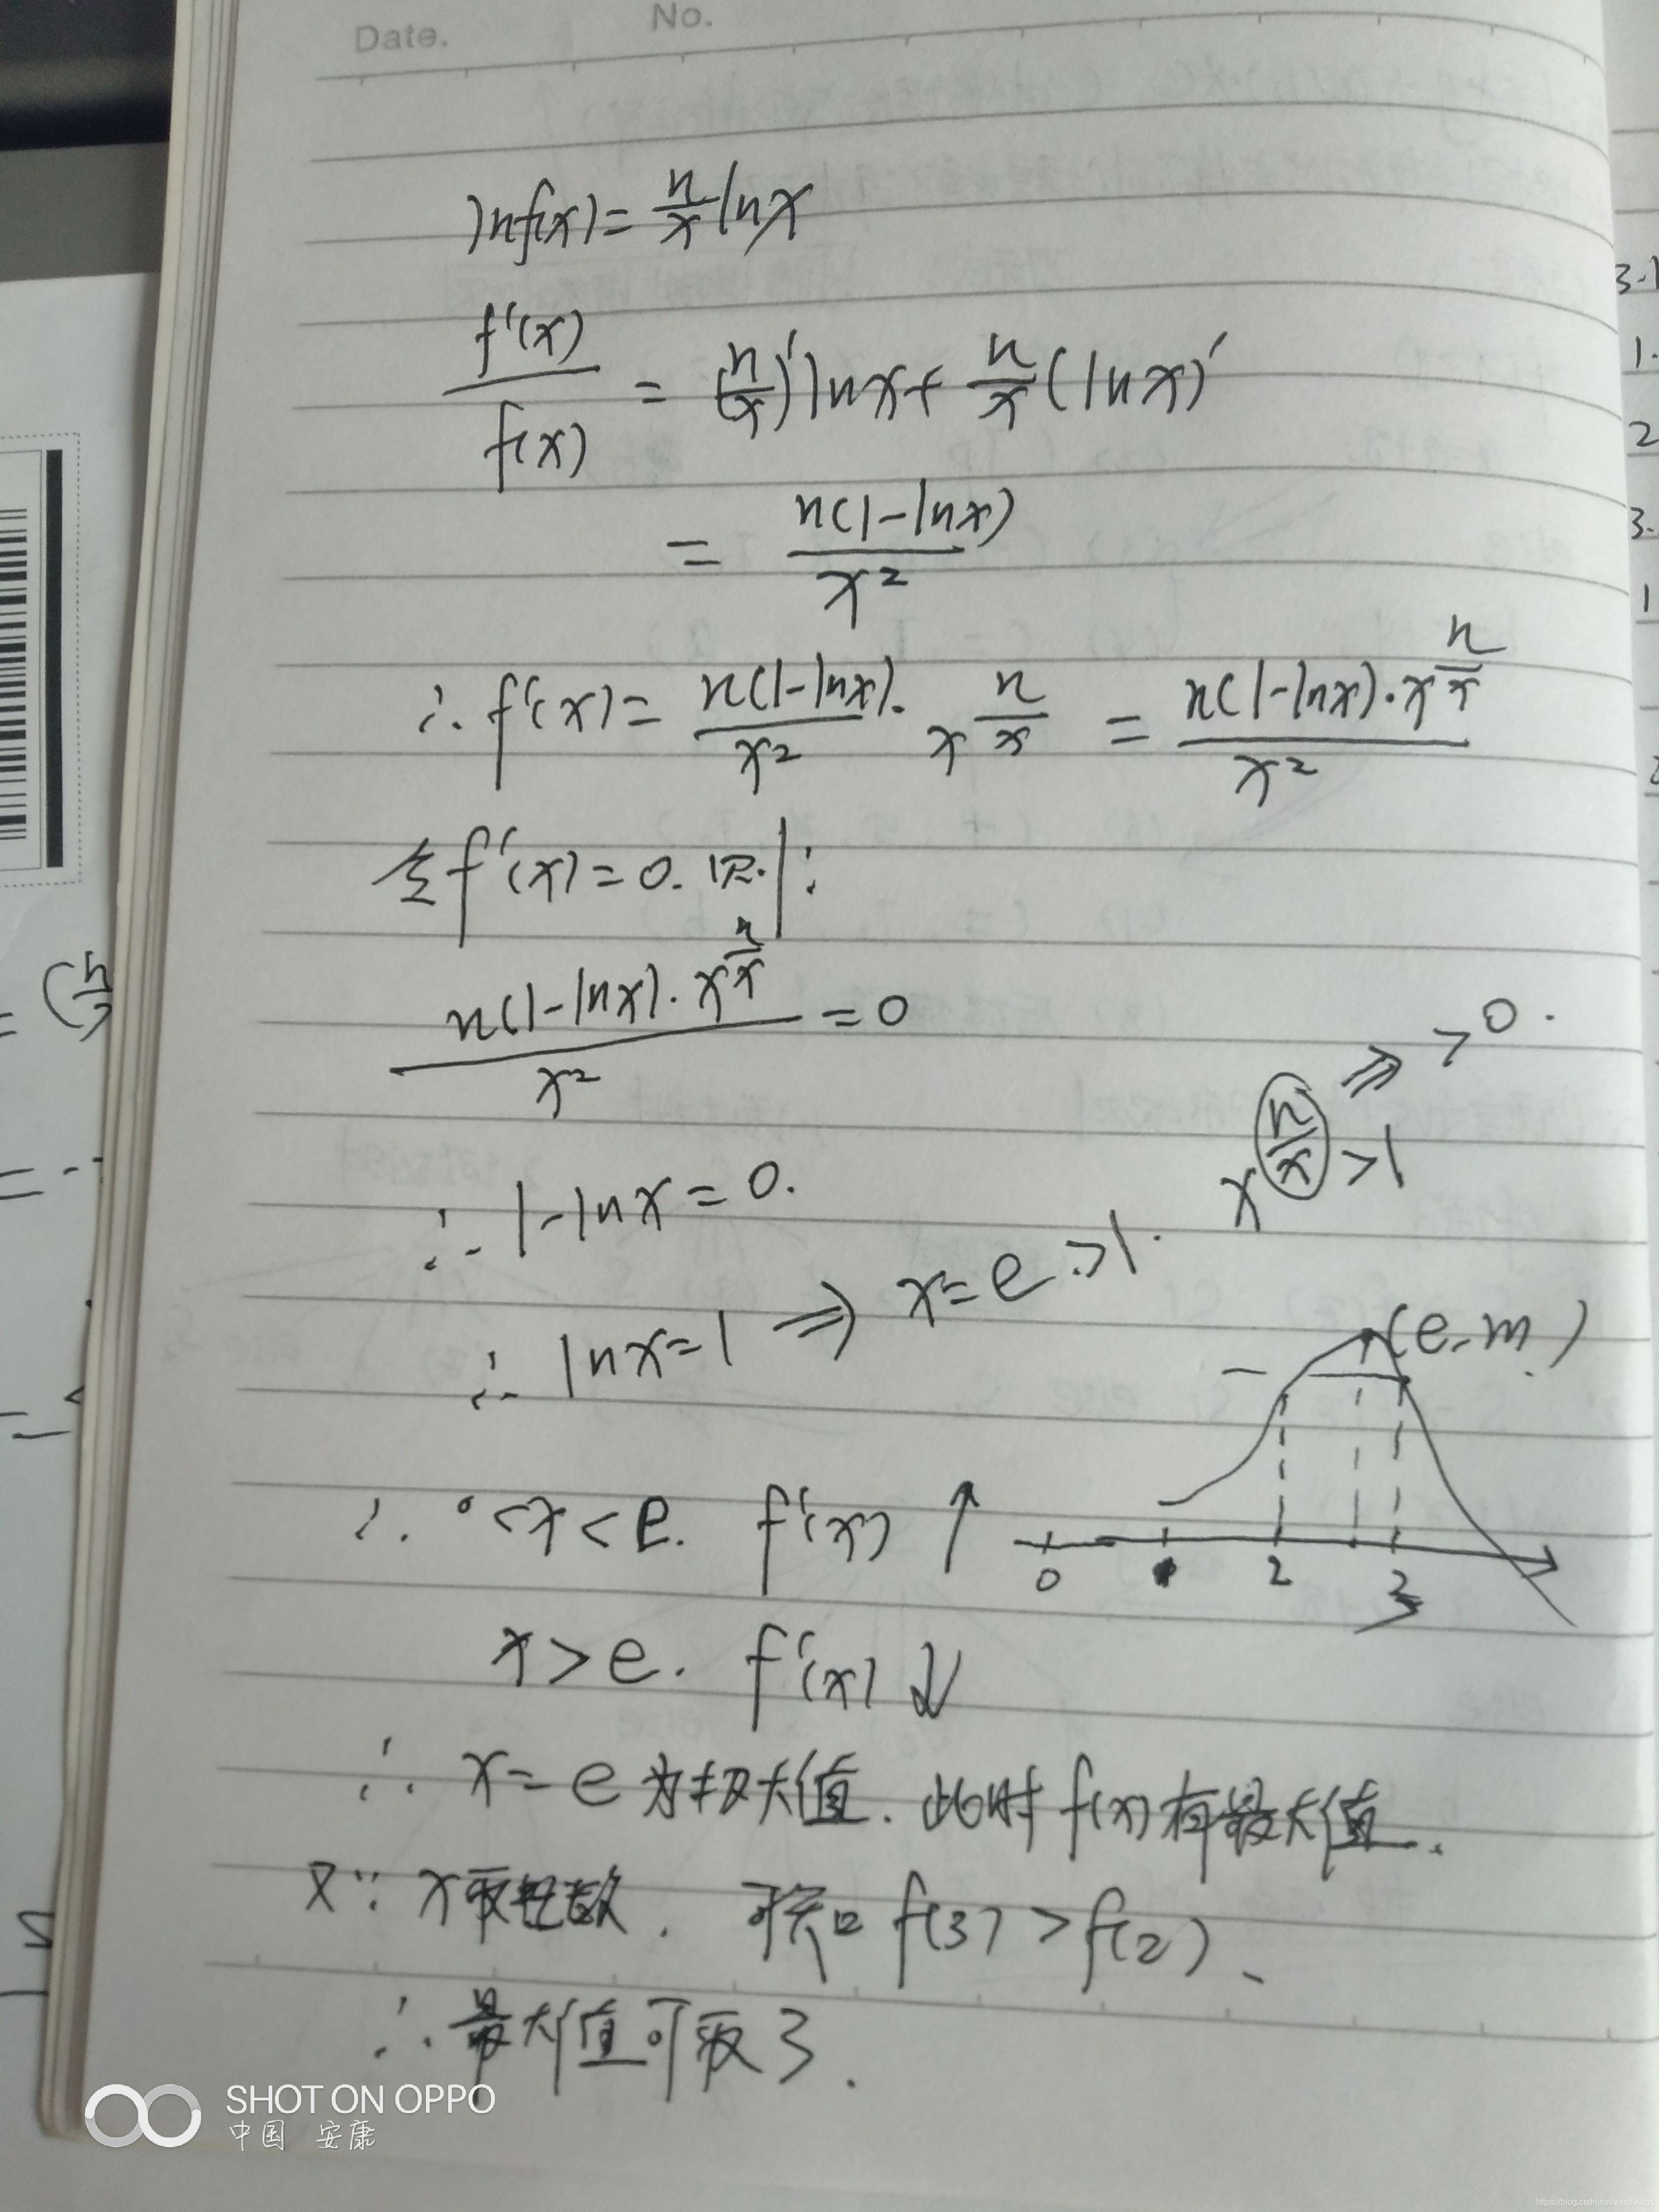 Date. No.
lnf(x)=n/x lnx
f'(x)/f(x) = (n/x)'lnx+ n/x (lnx)'
= n(1-lnx)/x²
∴ f'(x)= n(1-lnx)/x² · x^(n/x) = n(1-lnx)·x^(n/x)/x²
令f'(x)=0. 则:
n(1-lnx)·x^(n/x)/x² =0
⇒ >0.
x^(n/x) >1
∴ 1-lnx=0.
∴ lnx=1 ⇒ x=e>1.
(e, m)
∴ 0<x<e. f'(x) ↑
0 2 3
x>e. f'(x) ↓
∴ x=e为极大值. 此时f(x)有最大值.
又∵ x取整数. 可知 f(3)>f(2)、
∴ 最大值可取3.
SHOT ON OPPO
中国 安康